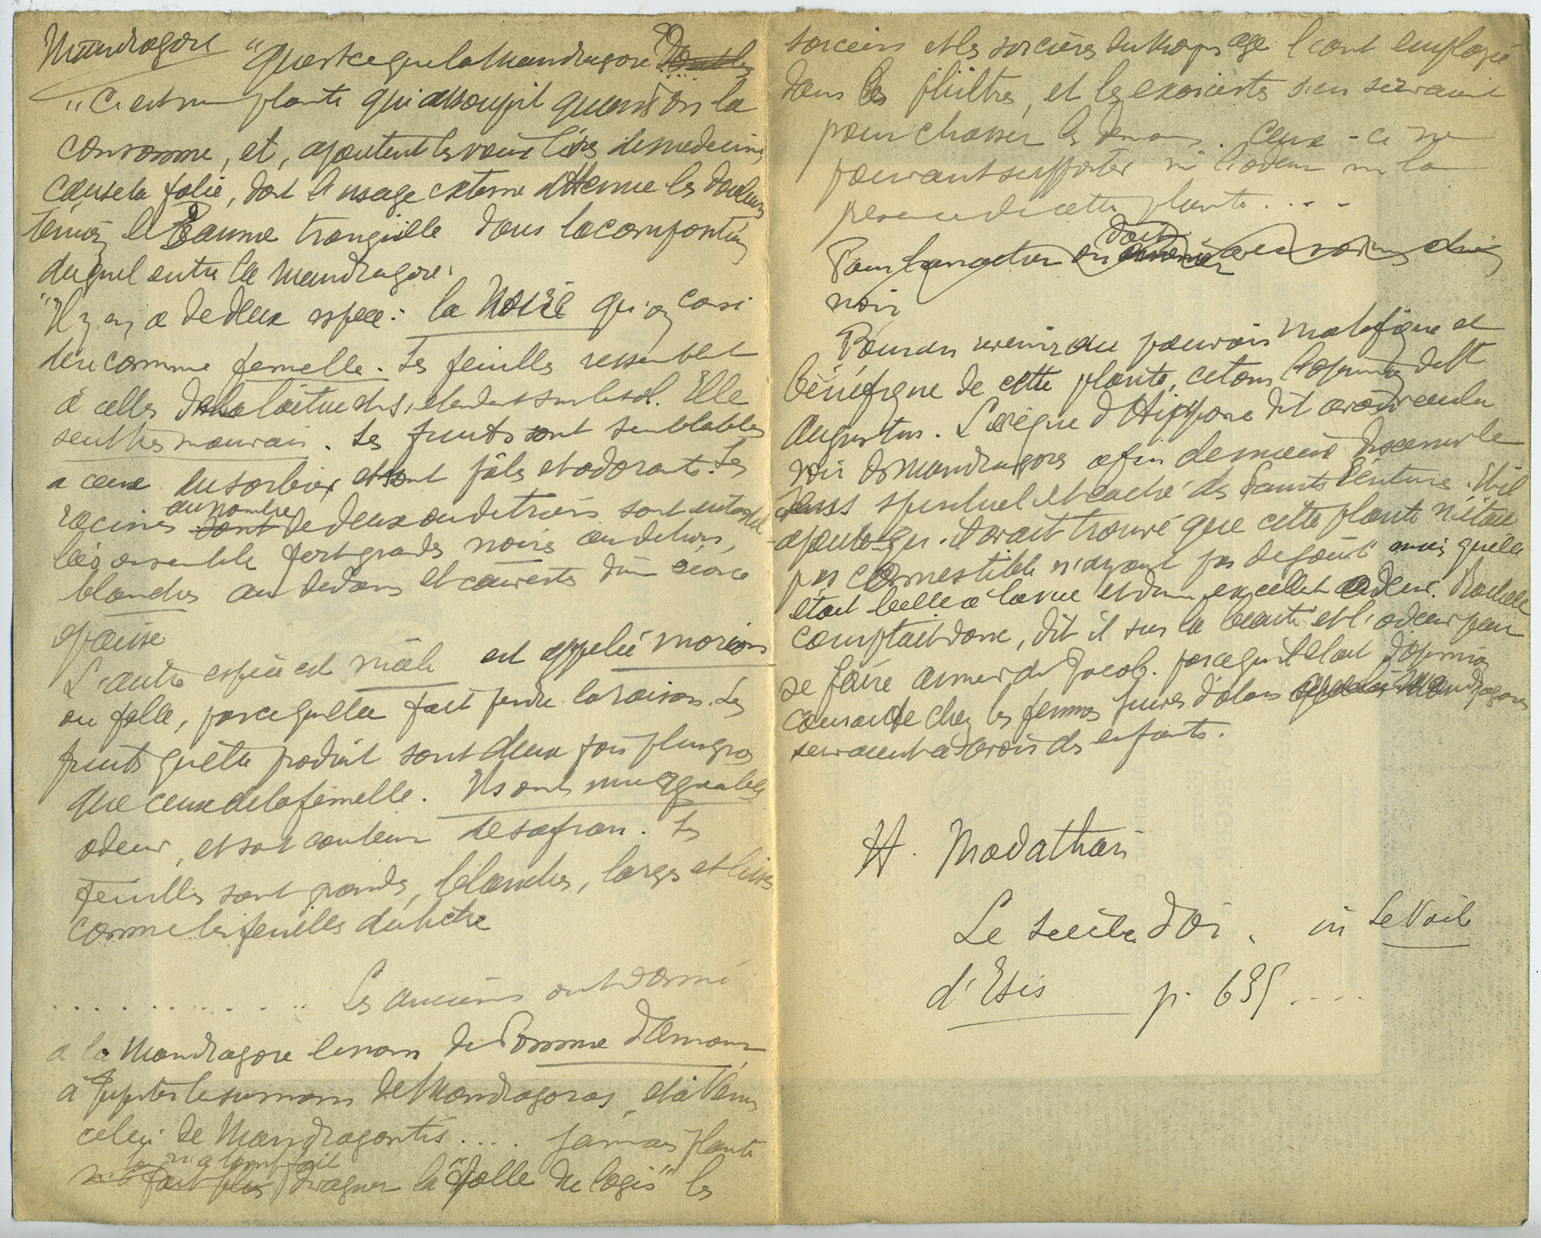 Mandragore "Qu'est ce que la Mandragore?
"C'est une plante qui assoupit quand on la
consomme, et, ajoutent les vieux livres de medecine
cause la folie, dont l'usage externe attenue les douleurs
témoin le Baume tranquille dans la composition
duquel entre la Mandragore.
"Il y en a de deux espece : la Noire qu'on consi
dere comme femelle. Ses feuilles ressemblent
à celles de la laitue et s'etendent sur le sol. Elle
sent tres mauvais. Ses fruits sont semblables
a ceux du sorbier et sont pâles et odorants. Ses
racines au nombre dont de deux ou de trois sont entortil
lées ensemble fort grandes noires au dehors,
blanches au dedans et couvertes d'une écorce
epaisse
L'autre espèce est mâle est appelée morion
ou folle, parce qu'elle fait perdre la raison. Les
fruits qu'elle produit sont deux fois plus gros
que ceux de la femelle. Ils ont une agreable
odeur, et sont couleur de safran. Ses
feuilles sont grandes, blanches, larges et lisses
comme les feuilles du hêtre
............. Les anciens ont donné
a la Mandragore le nom de Pomme d'Amour
à Jupiter le surnom de Mandragoras, et à Venus
celui de Mandragontis.... Jamais plante
n'a tant fait
n'a fait plus divaguer la "folle du logis" les
sorciers et les sorcières du moyen age l'ont employé
dans les philtres, et les exorcistes s'en servaient
pour chasser les demons. Ceux-ci ne
pouvant supporter ni l'odeur ni la
presence de cette plante....
Pour l'arracher on doit avec un chien
noir
Pour en revenir au pouvoir malefique et
bénéfique de cette plante, citons l'opinion de St
Augustin. L'évêque d'Hippone dit avoir voulu
voir des mandragores afin de mieux discerner le
sens spirituel et caché de la Sainte Ecriture. Et il
ajoute qu'il avait trouvé que cette plante n'était
pas comestible n'ayant pas de goût mais qu'elle
etait belle à la vue et d'une excellente odeur. Rachelle
comptait donc, dit il sur la beauté et l'odeur pour
se faire aimer de Jacob. parce qu'il etait d'opinion
courante chez les femmes juives d'alors Mandragores
servaient a avoir des enfants.
H. Madathan
Le Siècle d'Or. in Le Voile
d'Isis p. 635....